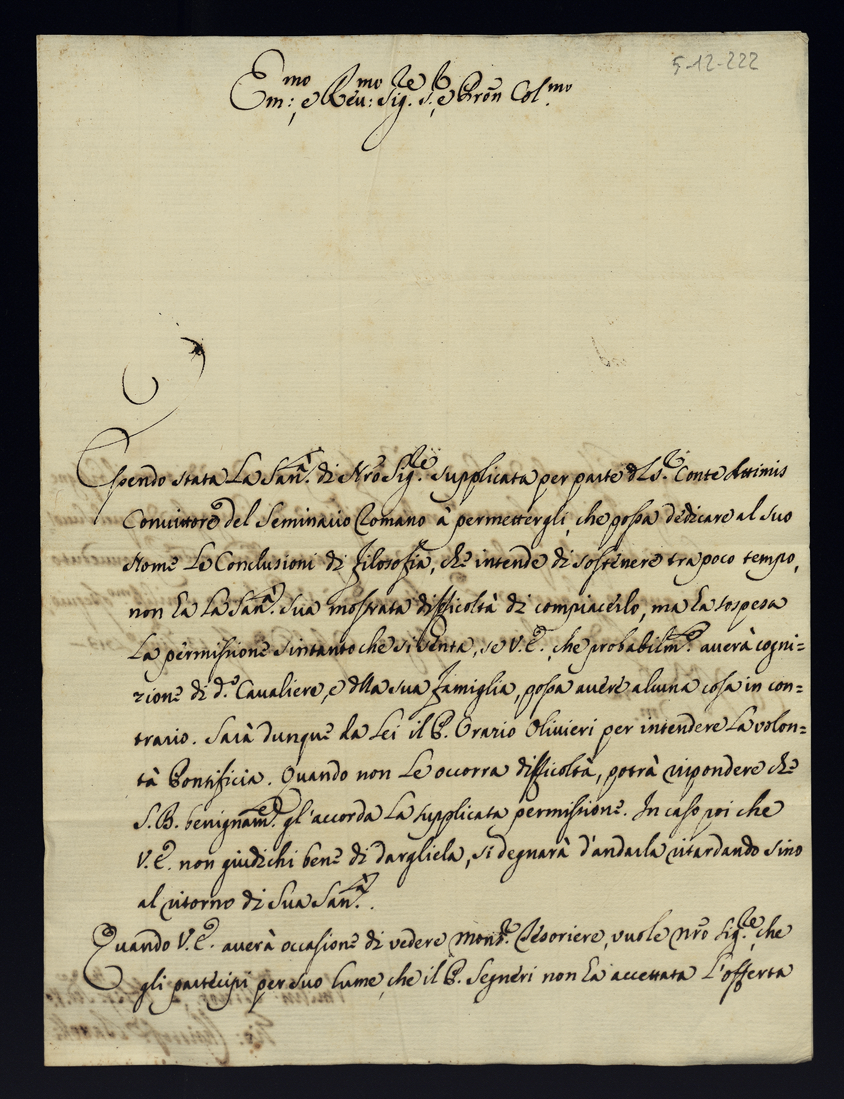 5-12-222
Em:mo, e Reu:mo Sig.re S.r e Pron Col.mo
Essendo stata La San.tà di Nro Sig.re supplicata per parte dl S.r Conte Attimis
Convittore del Seminario Romano à permettergli, che possa dedicare al suo
Nome Le Conclusioni di Filosofia, che intende di sostenere tra poco tempo,
non ha La San.tà Sua mostrata difficoltà di compiacerlo, ma ha sospesa
La permissione sintanto che si senta, se V.E., che probabilm.e averà cogni=
zione di d.o Cavaliere, e dlla sua Famiglia, possa avere alcuna cosa in con=
trario. Sarà dunque da Lei il P. Orazio Olivieri per intendere La volon=
tà Pontificia. Quando non Le occorra difficoltà, potrà rispondere che
S.B. benignam.e gl'accorda La supplicata permissione. In caso poi che
V.E. non giudichi bene di dargliela, si degnarà d'andarla ritardando sino
al ritorno di Sua San.tà.
Quando V.E. averà occasione di vedere Mons.r Tesoriere, vuole nro Sig.re, che
gli partecipi per suo lume, che il P. Segneri non ha accettata L'offerta